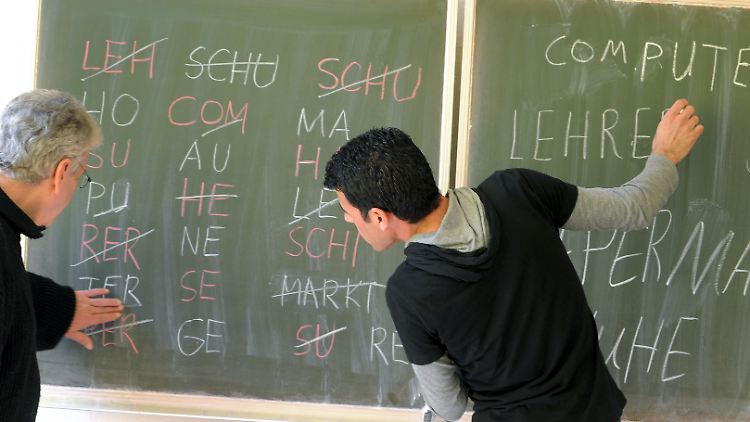 LEH SCHU SCHU
HO COM MA
SU AU
PU HE LE
RER NE SCHI
TER SE MARKT
ER GE SU RE
COMPUTE
LEHRE
PERMA
UHE